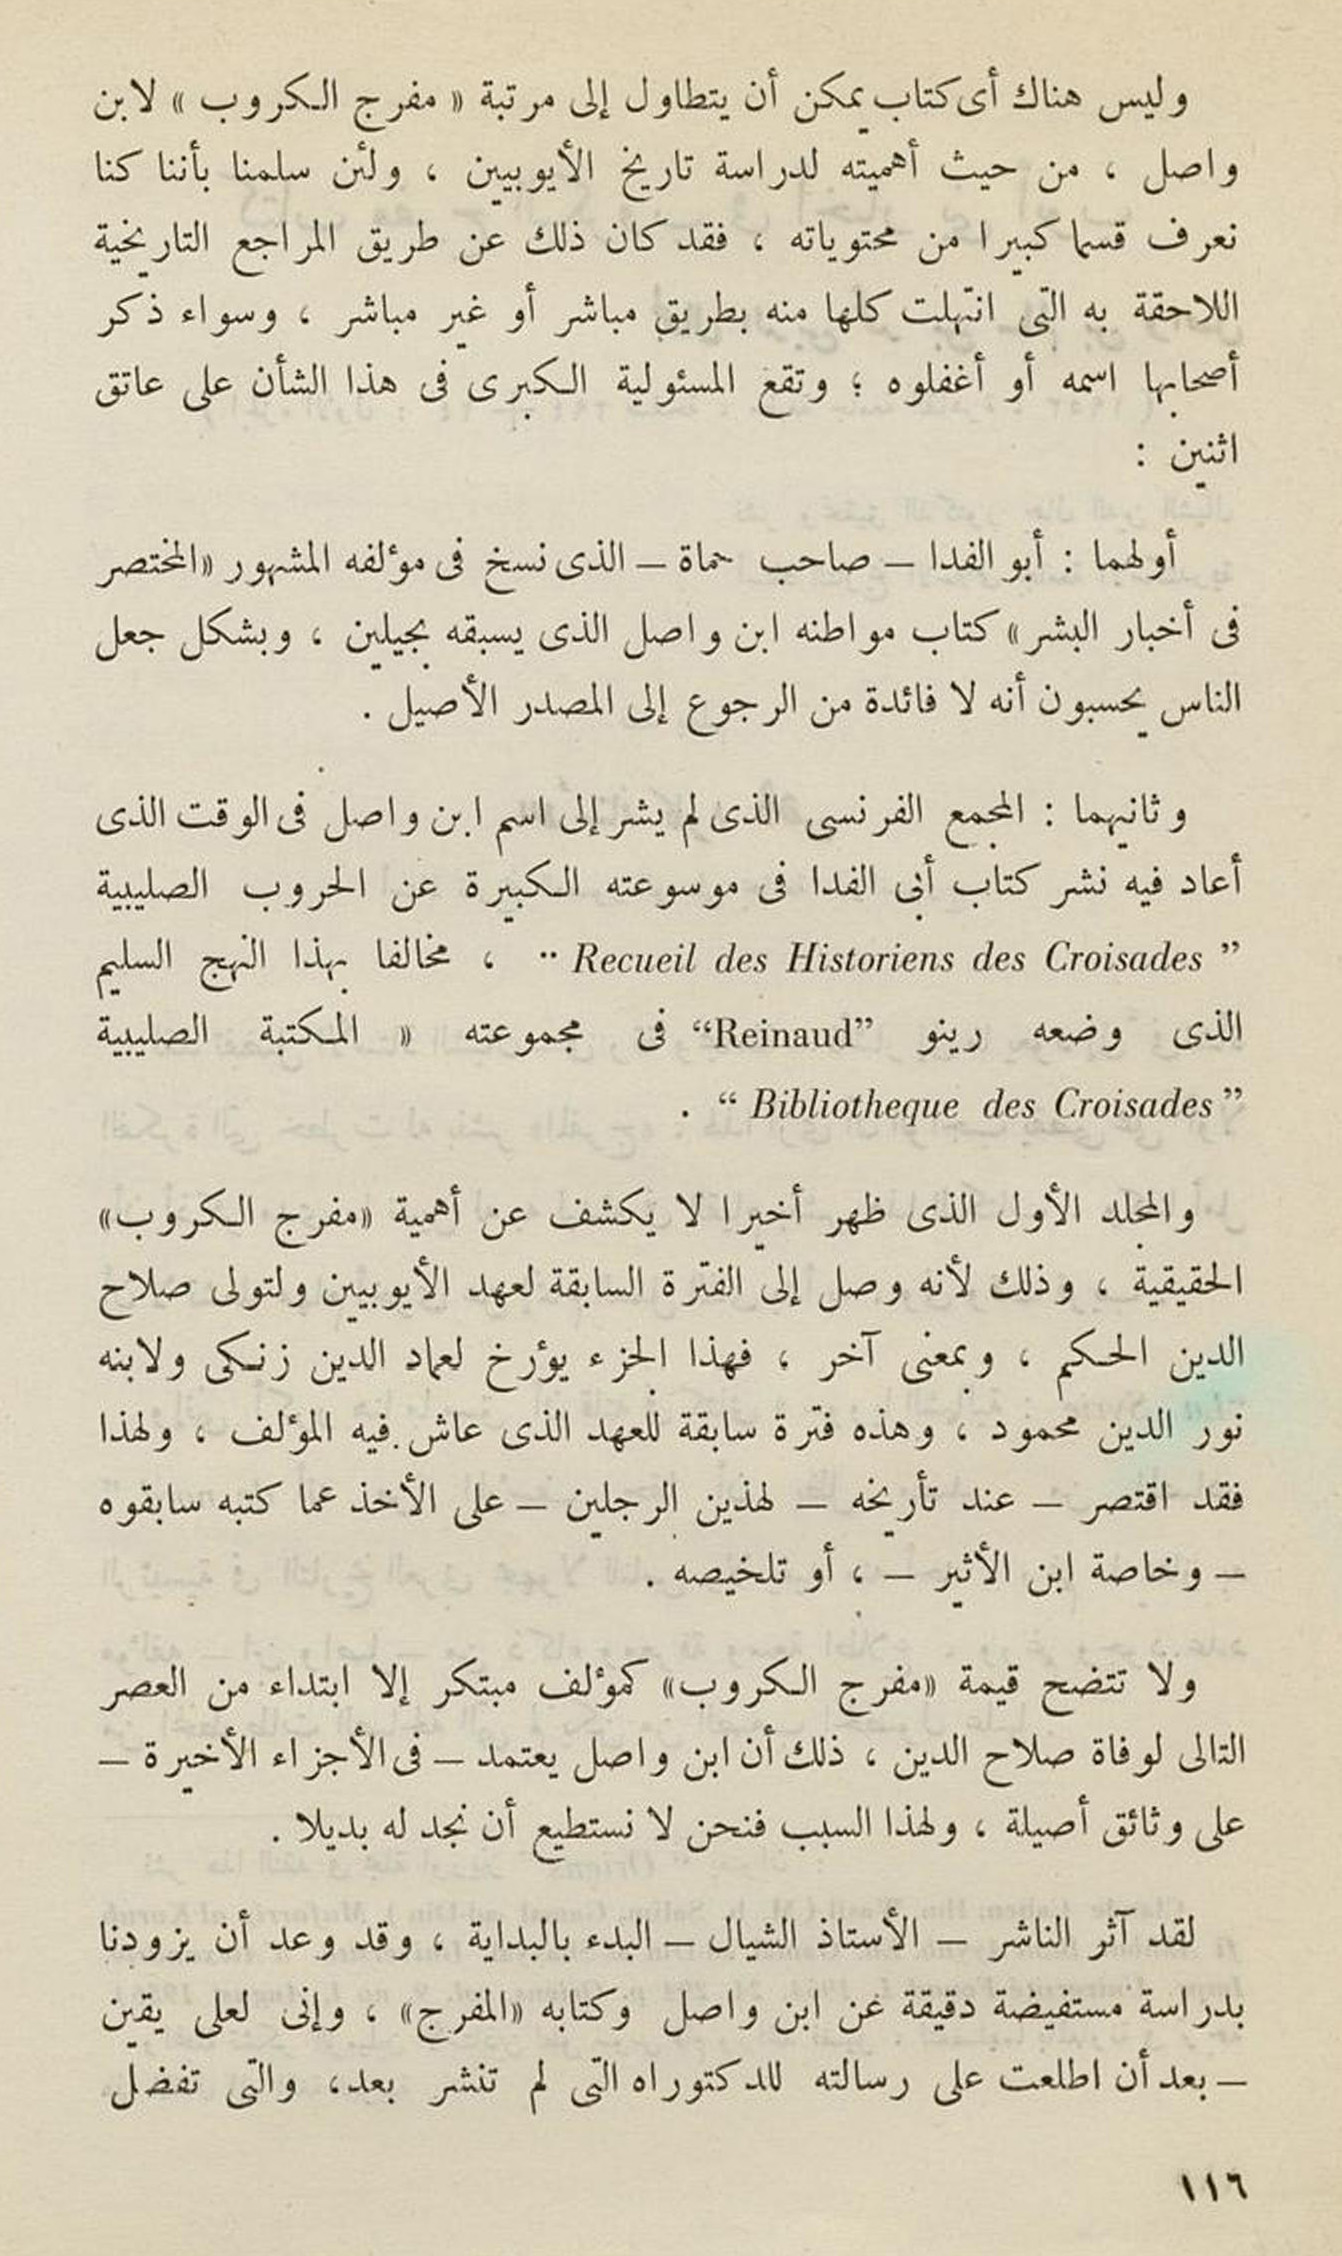 وليس هناك أى كتاب يمكن أن يتطاول إلى مرتبة « مفرج الكروب » لابن
واصل ، من حيث أهميته لدراسة تاريخ الأيوبيين ، ولئن سلمنا بأننا كنا
نعرف قسما كبيرا من محتوياته ، فقد كان ذلك عن طريق المراجع التاريخية
اللاحقة به التى انتهلت كلها منه بطريق مباشر أو غير مباشر ، وسواء ذكر
أصحابها اسمه أو أغفلوه ؛ وتقع المسئولية الكبرى فى هذا الشأن على عاتق
اثنين :
أولهما : أبو الفدا – صاحب حماة – الذى نسخ فى مؤلفه المشهور «المختصر
فى أخبار البشر» كتاب مواطنه ابن واصل الذى يسبقه بجيلين ، وبشكل جعل
الناس يحسبون أنه لا فائدة من الرجوع إلى المصدر الأصيل .
وثانيهما : المجمع الفرنسى الذى لم يشر إلى اسم ابن واصل فى الوقت الذى
أعاد فيه نشر كتاب أبى الفدا فى موسوعته الكبيرة عن الحروب الصليبية
“ Recueil des Historiens des Croisades ” ، مخالفا بهذا النهج السليم
الذى وضعه رينو “Reinaud” فى مجموعته « المكتبة الصليبية
“ Bibliotheque des Croisades ” .
والمجلد الأول الذى ظهر أخيرا لا يكشف عن أهمية «مفرج الكروب»
الحقيقية ، وذلك لأنه وصل إلى الفترة السابقة لعهد الأيوبيين ولتولى صلاح
الدين الحكم ، وبمعنى آخر ، فهذا الجزء يؤرخ لعماد الدين زنكى ولابنه
نور الدين محمود ، وهذه فترة سابقة للعهد الذى عاش فيه المؤلف ، ولهذا
فقد اقتصر – عند تأريخه – لهذين الرجلين – على الأخذ عما كتبه سابقوه
– وخاصة ابن الأثير – ، أو تلخيصه .
ولا تتضح قيمة «مفرج الكروب» كمؤلف مبتكر إلا ابتداء من العصر
التالى لوفاة صلاح الدين ، ذلك أن ابن واصل يعتمد – فى الأجزاء الأخيرة –
على وثائق أصيلة ، ولهذا السبب فنحن لا نستطيع أن نجد له بديلا .
لقد آثر الناشر – الأستاذ الشيال – البدء بالبداية ، وقد وعد أن يزودنا
بدراسة مستفيضة دقيقة عن ابن واصل وكتابه «المفرج» ، وإنى لعلى يقين
– بعد أن اطلعت على رسالته للدكتوراه التى لم تنشر بعد، والتى تفضل
١١٦